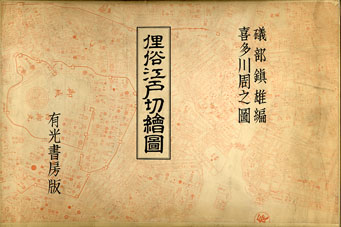 礒部鎭雄編
喜多川周之圖
俚俗江戸切繪圖
有光書房版